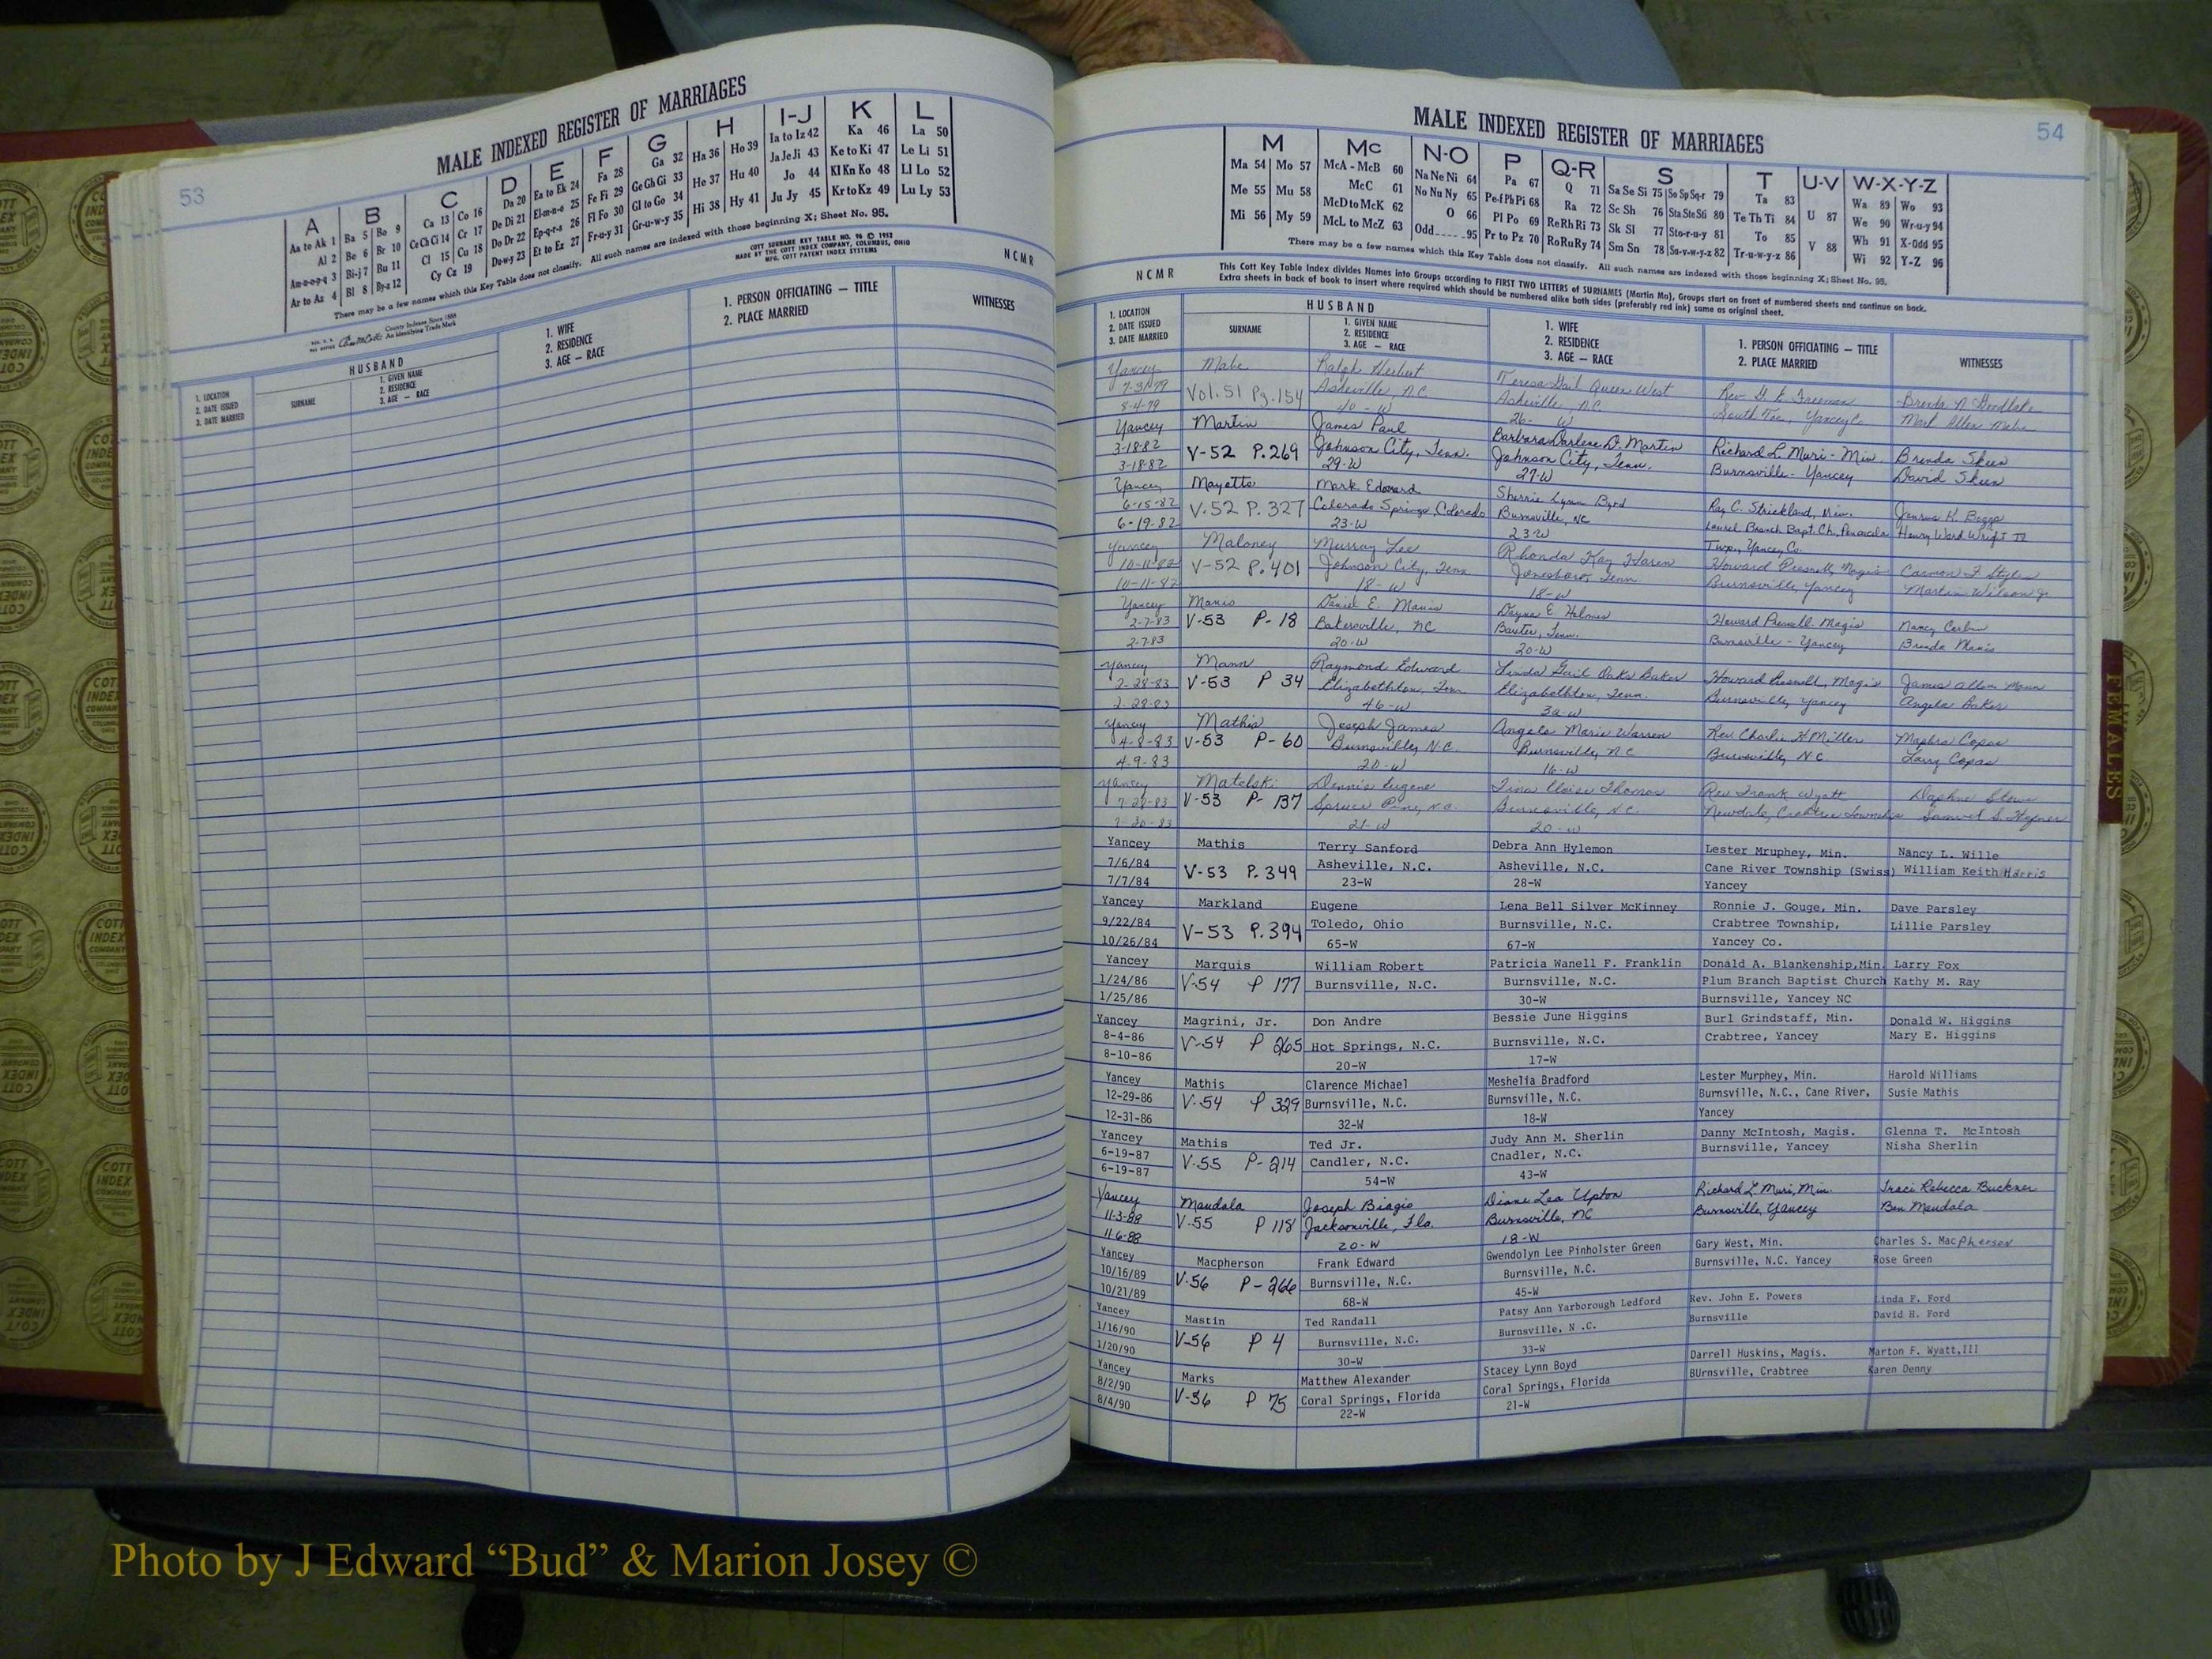 53
MALE INDEXED REGISTER OF MARRIAGES
A
Aa to Ak 1
Al 2
Am-n-o-p-q 3
Ar to Az 4
B
Ba 5 Bo 9
Be 6 Br 10
Bi-j 7 Bu 11
Bl 8 By-z 12
C
Ca 13 Co 16
Ce Ch Ci 14 Cr 17
Cl 15 Cu 18
Cy Cz 19
D
Da 20
De Di 21
Do Dr 22
Du-w-y 23
E
Ea to Ek 24
El-m-n-o 25
Ep-q-r-s 26
Et to Ez 27
F
Fa 28
Fe Fi 29
Fl Fo 30
Fr-u-y 31
G
Ga 32
Ge Gh Gi 33
Gl to Go 34
Gr-u-w-y 35
H
Ha 36 Ho 39
He 37 Hu 40
Hi 38 Hy 41
I-J
Ia to Iz 42
Ja Je Ji 43
Jo 44
Ju Jy 45
K
Ka 46
Ke to Ki 47
Kl Kn Ko 48
Kr to Kz 49
L
La 50
Le Li 51
Ll Lo 52
Lu Ly 53
There may be a few names which this Key Table does not classify. All such names are indexed with those beginning X; Sheet No. 95.
COTT SURNAME KEY TABLE NO. 96 © 1952
MADE BY THE COTT INDEX COMPANY, COLUMBUS, OHIO
MFG. COTT PATENT INDEX SYSTEMS
NCMR
County Indexes Since 1888
An Identifying Trade Mark
1. LOCATION
2. DATE ISSUED
3. DATE MARRIED
HUSBAND
SURNAME
1. GIVEN NAME
2. RESIDENCE
3. AGE — RACE
1. WIFE
2. RESIDENCE
3. AGE — RACE
1. PERSON OFFICIATING — TITLE
2. PLACE MARRIED
WITNESSES
MALE INDEXED REGISTER OF MARRIAGES
54
M
Ma 54 Mo 57
Me 55 Mu 58
Mi 56 My 59
Mc
McA - McB 60
McC 61
McD to McK 62
McL to McZ 63
N-O
Na Ne Ni 64
No Nu Ny 65
O 66
Odd 95
P
Pa 67
Pe-f Ph Pi 68
Pl Po 69
Pr to Pz 70
Q-R
Q 71
Ra 72
Re Rh Ri 73
Ro Ru Ry 74
S
Sa Se Si 75 So Sp Sq-r 79
Sc Sh 76 Sta Ste Sti 80
Sk Sl 77 Sto-r-u-y 81
Sm Sn 78 Su-v-w-y-z 82
T
Ta 83
Te Th Ti 84
To 85
Tr-u-w-y-z 86
U-V
U 87
V 88
W-X-Y-Z
Wa 89 Wo 93
We 90 Wr-u-y 94
Wh 91 X-Odd 95
Wi 92 Y-Z 96
There may be a few names which this Key Table does not classify. All such names are indexed with those beginning X; Sheet No. 95.
NCMR
This Cott Key Table Index divides Names into Groups according to FIRST TWO LETTERS of SURNAMES (Martin Ma), Groups start on front of numbered sheets and continue on back.
Extra sheets in back of book to insert where required which should be numbered alike both sides (preferably red ink) same as original sheet.
1. LOCATION
2. DATE ISSUED
3. DATE MARRIED
HUSBAND
SURNAME
1. GIVEN NAME
2. RESIDENCE
3. AGE — RACE
1. WIFE
2. RESIDENCE
3. AGE — RACE
1. PERSON OFFICIATING — TITLE
2. PLACE MARRIED
WITNESSES
Yancey Ralph Herbert Teresa Gail Queen West Rev. Freeman Brenda
7-31-79 Vol. 51 Pg. 154 Asheville, N.C. Asheville, N.C. South Toe, Yancey Mark Allen
8-4-79 40 - W 26- W
Yancey Martin James Paul Barbara Darlene D. Martin Richard L. Muri - Min. Brenda Skeen
3-18-82 V-52 P.269 Johnson City, Tenn. Johnson City, Tenn. Burnsville - Yancey David Skeen
3-18-82 29-W 27-W
Yancey Mayotte Mark Edward Sherrie Lynn Byrd Ray C. Strickland, Min.
6-15-82 V-52 P.327 Colorado Springs, Colorado Burnsville, NC Laurel Branch Bapt. Ch., Pensacola Henry Ward Wright
6-19-82 23-W 23-W Twp., Yancey Co.
Yancey Maloney Murray Lee Rhonda Kay Howard Presnell, Magis
10-11-82 V-52 P.401 Johnson City, Tenn. Jonesboro, Tenn. Burnsville, Yancey Martin Wilson Jr.
10-11-82 18-W 18-W
Yancey Manis Daniel E. Manis Dayna E Holmes Howard Presnell Magis Nancy
2-7-83 V-53 P-18 Bakersville, NC Baxter, Tenn. Burnsville - Yancey Brenda Manis
2-7-83 20-W 20-W
Yancey Mann Raymond Edward Linda Gail Oaks Baker Howard Presnell, Magis James Allen Mann
2-28-83 V-53 P 34 Elizabethton, Tenn Elizabethton, Tenn. Burnsville, Yancey Angela Baker
2-28-83 46-W
Yancey Mathis Joseph James Angela Marie Warren Rev Charlie H Miller Copas
4-8-83 V-53 P-60 Burnsville, N.C. Burnsville, NC Burnsville, N.C. Larry Copas
4-9-83 20-W 16-W
Yancey Matelski Dennis Eugene Tina Thomas Rev Frank Wyatt Daphne
7-28-83 V-53 P-137 Spruce Pine, N.C. Burnsville, N.C. Newdale, Crabtree Township Samuel
7-30-83 21-W 20-W
Yancey Mathis Terry Sanford Debra Ann Hylemon Lester Mruphey, Min. Nancy L. Wille
7/6/84 V-53 P.349 Asheville, N.C. Asheville, N.C. Cane River Township (Swiss) William Keith Harris
7/7/84 23-W 28-W Yancey
Yancey Markland Eugene Lena Bell Silver McKinney Ronnie J. Gouge, Min. Dave Parsley
9/22/84 V-53 P.394 Toledo, Ohio Burnsville, N.C. Crabtree Township, Lillie Parsley
10/26/84 65-W 67-W Yancey Co.
Yancey Marquis William Robert Patricia Wanell F. Franklin Donald A. Blankenship,Min. Larry Fox
1/24/86 V-54 P 177 Burnsville, N.C. Burnsville, N.C. Plum Branch Baptist Church Kathy M. Ray
1/25/86 30-W Burnsville, Yancey NC
Yancey Magrini, Jr. Don Andre Bessie June Higgins Burl Grindstaff, Min. Donald W. Higgins
8-4-86 V-54 P 265 Hot Springs, N.C. Burnsville, N.C. Crabtree, Yancey Mary E. Higgins
8-10-86 20-W 17-W
Yancey Mathis Clarence Michael Meshelia Bradford Lester Murphey, Min. Harold Williams
12-29-86 V-54 P 329 Burnsville, N.C. Burnsville, N.C. Burnsville, N.C., Cane River, Susie Mathis
12-31-86 32-W 18-W Yancey
Yancey Mathis Ted Jr. Judy Ann M. Sherlin Danny McIntosh, Magis. Glenna T. McIntosh
6-19-87 V-55 P-214 Candler, N.C. Cnadler, N.C. Burnsville, Yancey Nisha Sherlin
6-19-87 54-W 43-W
Yancey Mandala Joseph Biagio Diane Lea Upton Richard L Muri, Min. Traci Rebecca Buckner
11-3-88 V-55 P 118 Jacksonville, Fla. Burnsville, NC Burnsville, Yancey Ben Mandala
11-6-88 20-W 18-W
Yancey Macpherson Frank Edward Gwendolyn Lee Pinholster Green Gary West, Min. Charles S. Macpherson
10/16/89 V-56 P-266 Burnsville, N.C. Burnsville, N.C. Burnsville, N.C. Yancey Rose Green
10/21/89 68-W 45-W
Yancey Mastin Ted Randall Patsy Ann Yarborough Ledford Rev. John E. Powers Linda F. Ford
1/16/90 V-56 P 4 Burnsville, N.C. Burnsville, N.C. Burnsville David H. Ford
1/20/90 30-W 33-W
Yancey Marks Matthew Alexander Stacey Lynn Boyd Darrell Huskins, Magis. Marton F. Wyatt,III
8/2/90 V-56 P 75 Coral Springs, Florida Coral Springs, Florida BUrnsville, Crabtree Karen Denny
8/4/90 22-W 21-W
FEMALES
Photo by J Edward “Bud” & Marion Josey ©